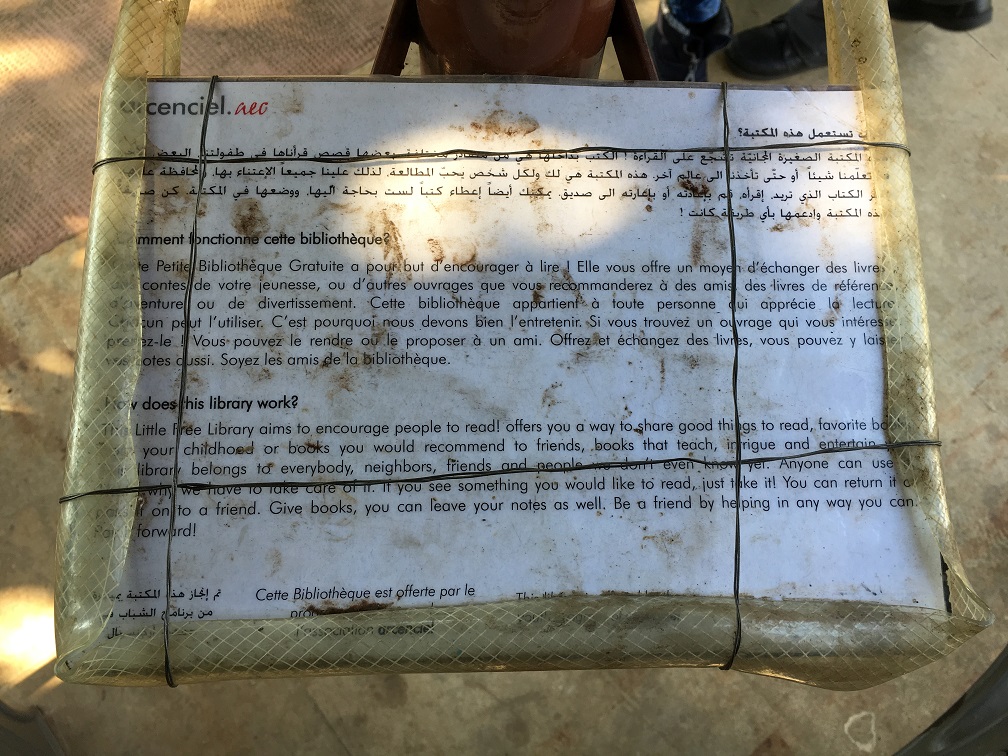 cenciel.aec
تستعمل هذه المكتبة؟
المكتبة الصغيرة المجانيّة تشجّع على القراءة ! الكتب بداخلها هي من مصادر مختلفة، بعضها قصص قرأناها في طفولتنا، البعض
تعلّمنا شيئاً أو حتّى تأخذنا الى عالم آخر. هذه المكتبة هي لك ولكل شخص يحبّ المطالعة. لذلك علينا جميعاً الإعتناء بها.
الكتاب الذي تريد. إقرأه، قم بإعادته أو بإعارته الى صديق. يمكنك أيضاً إعطاء كتباً لست بحاجة اليها. ووضعها في المكتبة. كن
المكتبة وادعمها بأي طريقة كانت !
Comment fonctionne cette bibliothèque?
Petite Bibliothèque Gratuite a pour but d'encourager à lire ! Elle vous offre un moyen d'échanger des livres
contes de votre jeunesse, ou d'autres ouvrages que vous recommanderez à des amis, des livres de référence,
d'aventure ou de divertissement. Cette bibliothèque appartient à toute personne qui apprécie la lecture.
Chacun peut l'utiliser. C'est pourquoi nous devons bien l'entretenir. Si vous trouvez un ouvrage qui vous intéresse
prenez-le ! Vous pouvez le rendre ou le proposer à un ami. Offrez et échangez des livres, vous pouvez y laisser
vos notes aussi. Soyez les amis de la bibliothèque.
How does this library work?
The Little Free Library aims to encourage people to read! offers you a way to share good things to read, favorite
your childhood or books you would recommend to friends, books that teach, intrigue and entertain.
library belongs to everybody, neighbors, friends and people we don't even know yet. Anyone can use
why we have to take care of it. If you see something you would like to read, just take it! You can return it
on to a friend. Give books, you can leave your notes as well. Be a friend by helping in any way you can.
forward!
تم إنجاز هذه المكتبة
من برنامج الشباب
Cette Bibliothèque est offerte par le
l'association arcenciel